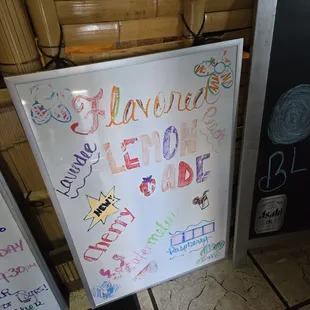 Flavored
LEMON
ADE
Lavender
NEW!
Cherry
Watermelon
Raspberry
DAY
930 pm
BL
Asahi